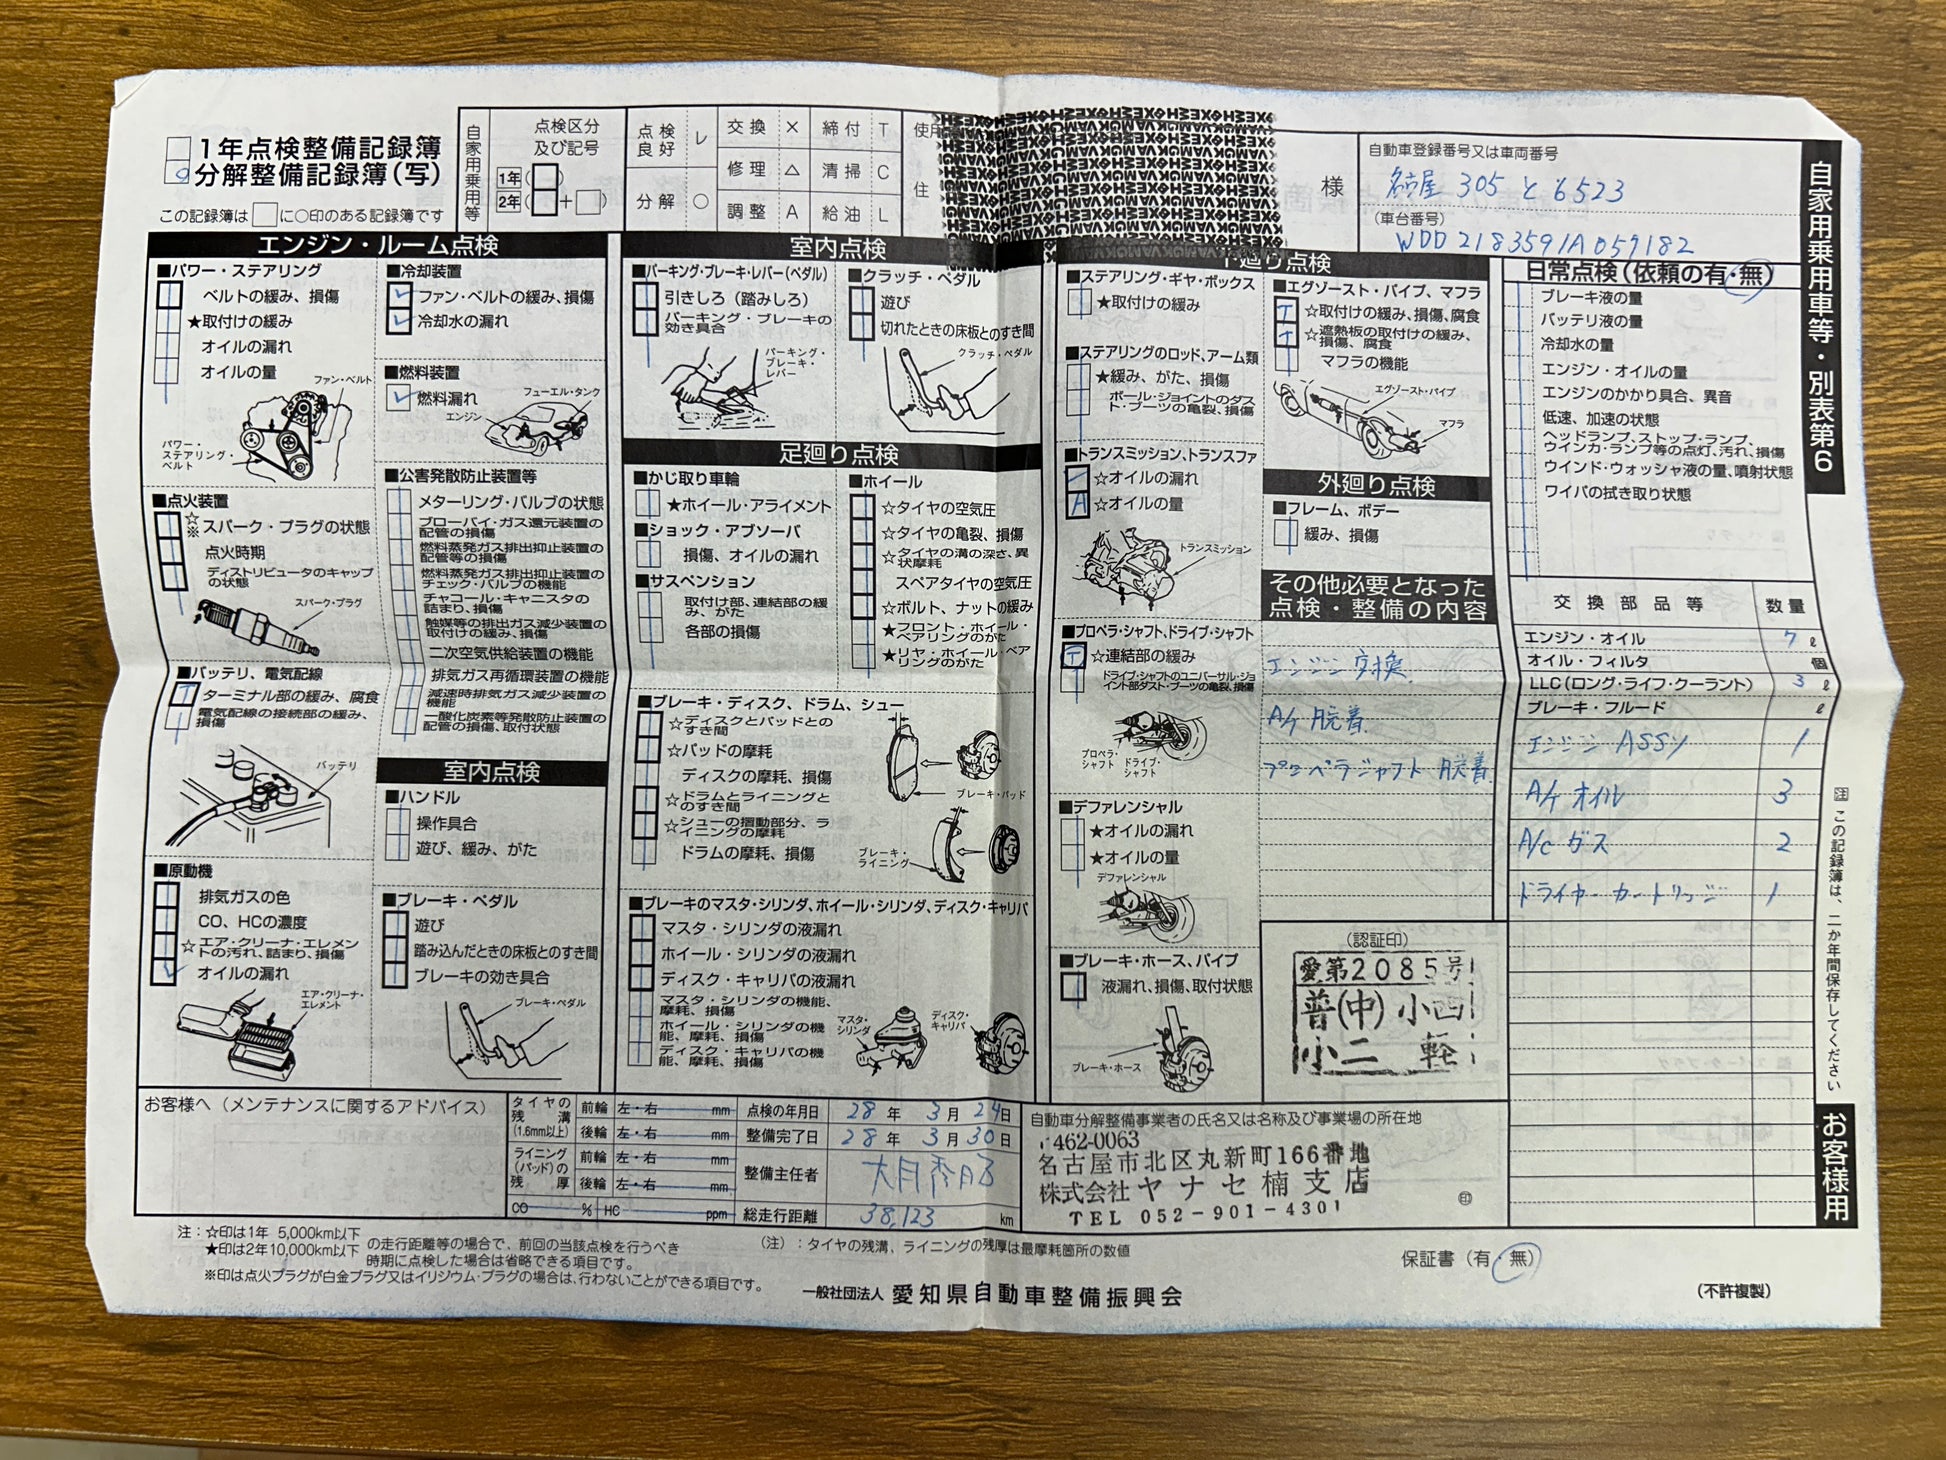 1年点検整備記録簿
分解整備記録簿(写)
この記録簿は□に○印のある記録簿です
自家用乗用等
点検区分
及び記号
1年( )
2年( + )
点検良好 レ
分解 ○
交換 × 締付 T
修理 △ 清掃 C
調整 A 給油 L
住
様
自動車登録番号又は車両番号
名古屋 305 と 6523
(車台番号)
WDD2183591A059182
自家用乗用車等・別表第6
エンジン・ルーム点検
■パワー・ステアリング
ベルトの緩み、損傷
★取付けの緩み
オイルの漏れ
オイルの量
ファン・ベルト
パワー・
ステアリング・
ベルト
■点火装置
☆
※スパーク・プラグの状態
点火時期
ディストリビュータのキャップ
の状態
スパーク・プラグ
■バッテリ、電気配線
T ターミナル部の緩み、腐食
電気配線の接続部の緩み、
損傷
バッテリ
■原動機
排気ガスの色
CO、HCの濃度
☆エア・クリーナ・エレメン
トの汚れ、詰まり、損傷
オイルの漏れ
エア・クリーナ・
エレメント
■冷却装置
ファン・ベルトの緩み、損傷
冷却水の漏れ
■燃料装置
燃料漏れ
フューエル・タンク
エンジン
■公害発散防止装置等
メターリング・バルブの状態
ブローバイ・ガス還元装置の
配管の損傷
燃料蒸発ガス排出抑止装置の
配管等の損傷
燃料蒸発ガス排出抑止装置の
チェック・バルブの機能
チャコール・キャニスタの
詰まり、損傷
触媒等の排出ガス減少装置の
取付けの緩み、損傷
二次空気供給装置の機能
排気ガス再循環装置の機能
減速時排気ガス減少装置の
機能
一酸化炭素等発散防止装置の
配管の損傷、取付状態
室内点検
■ハンドル
操作具合
遊び、緩み、がた
■ブレーキ・ペダル
遊び
踏み込んだときの床板とのすき間
ブレーキの効き具合
ブレーキ・ペダル
室内点検
■パーキング・ブレーキ・レバー(ペダル)
引きしろ(踏みしろ)
パーキング・ブレーキの
効き具合
パーキング・
ブレーキ・
レバー
■クラッチ・ペダル
遊び
切れたときの床板とのすき間
クラッチ・ペダル
足廻り点検
■かじ取り車輪
★ホイール・アライメント
■ショック・アブソーバ
損傷、オイルの漏れ
■サスペンション
取付け部、連結部の緩
み、がた
各部の損傷
■ホイール
☆タイヤの空気圧
☆タイヤの亀裂、損傷
☆タイヤの溝の深さ、異
状摩耗
スペアタイヤの空気圧
☆ボルト、ナットの緩み
★フロント・ホイール・
ベアリングのがた
★リヤ・ホイール・ベア
リングのがた
■ブレーキ・ディスク、ドラム、シュー
☆ディスクとパッドとの
すき間
☆パッドの摩耗
ディスクの摩耗、損傷
☆ドラムとライニングと
のすき間
☆シューの摺動部分、ラ
イニングの摩耗
ドラムの摩耗、損傷
ブレーキ・パッド
ブレーキ・
ライニング
■ブレーキのマスタ・シリンダ、ホイール・シリンダ、ディスク・キャリパ
マスタ・シリンダの液漏れ
ホイール・シリンダの液漏れ
ディスク・キャリパの液漏れ
マスタ・シリンダの機能、
摩耗、損傷
ホイール・シリンダの機
能、摩耗、損傷
ディスク・キャリパの機
能、摩耗、損傷
マスタ・
シリンダ
ディスク・
キャリパ
下廻り点検
■ステアリング・ギヤ・ボックス
★取付けの緩み
■ステアリングのロッド、アーム類
★緩み、がた、損傷
ボール・ジョイントのダス
ト・ブーツの亀裂、損傷
■トランスミッション、トランスファ
☆オイルの漏れ
A ☆オイルの量
トランスミッション
■プロペラ・シャフト、ドライブ・シャフト
T ☆連結部の緩み
ドライブ・シャフトのユニバーサル・ジョ
イント部ダスト・ブーツの亀裂、損傷
プロペラ・
シャフト
ドライブ・
シャフト
■デファレンシャル
★オイルの漏れ
★オイルの量
デファレンシャル
■ブレーキ・ホース、パイプ
液漏れ、損傷、取付状態
ブレーキ・ホース
■エグゾースト・パイプ、マフラ
T ☆取付けの緩み、損傷、腐食
T ☆遮熱板の取付けの緩み、
損傷、腐食
マフラの機能
エグゾースト・パイプ
マフラ
外廻り点検
■フレーム、ボデー
緩み、損傷
その他必要となった
点検・整備の内容
エンジン交換
A/T 脱着
プロペラシャフト 脱着
(認証印)
愛第2085号
普(中)小四
小二 軽
日常点検(依頼の有・無)
ブレーキ液の量
バッテリ液の量
冷却水の量
エンジン・オイルの量
エンジンのかかり具合、異音
低速、加速の状態
ヘッドランプ、ストップ・ランプ、
ウインカ・ランプ等の点灯、汚れ、損傷
ウインド・ウォッシャ液の量、噴射状態
ワイパの拭き取り状態
交換部品等 数量
エンジン・オイル 7 ℓ
オイル・フィルタ 個
LLC(ロング・ライフ・クーラント) 3 ℓ
ブレーキ・フルード ℓ
エンジン ASSY 1
A/T オイル 3
A/C ガス 2
ドライヤーカートリッジ 1
注 この記録簿は、二か年間保存してください
お客様用
お客様へ(メンテナンスに関するアドバイス)
タイヤの
残 溝
(1.6mm以上)
前輪 左・右 mm
後輪 左・右 mm
ライニング
(パッド)の
残 厚
前輪 左・右 mm
後輪 左・右 mm
CO % HC ppm
点検の年月日 28年 3月 24日
整備完了日 28年 3月 30日
整備主任者
総走行距離 38,123 km
自動車分解整備事業者の氏名又は名称及び事業場の所在地
462-0063
名古屋市北区丸新町166番地
株式会社ヤナセ楠支店
TEL 052-901-4301
㊞
注:☆印は1年 5,000km以下
★印は2年10,000km以下
の走行距離等の場合で、前回の当該点検を行うべき
時期に点検した場合は省略できる項目です。
※印は点火プラグが白金プラグ又はイリジウム・プラグの場合は、行わないことができる項目です。
(注):タイヤの残溝、ライニングの残厚は最摩耗箇所の数値
一般社団法人 愛知県自動車整備振興会
保証書(有・無)
(不許複製)